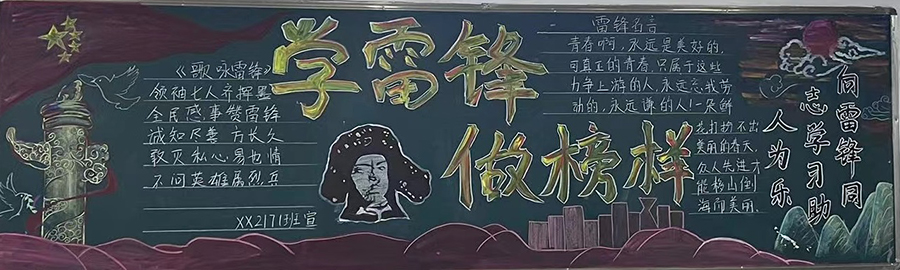 学雷锋
做榜样
《歌咏雷锋》
领袖七人齐挥墨
全民感事赞雷锋
诚知尽善方长久
致灭私心易也情
不问英雄属烈兵
XX2171班宣
雷锋名言
青春啊，永远是美好的，
可真正的青春，只属于这些
力争上游的人，永远忘我劳
动的，永远谦的人！一朵鲜
花打扮不出
美丽的春天，
众人先进才
能移山倒
海
美丽，
向雷锋同
志学习助
人为乐